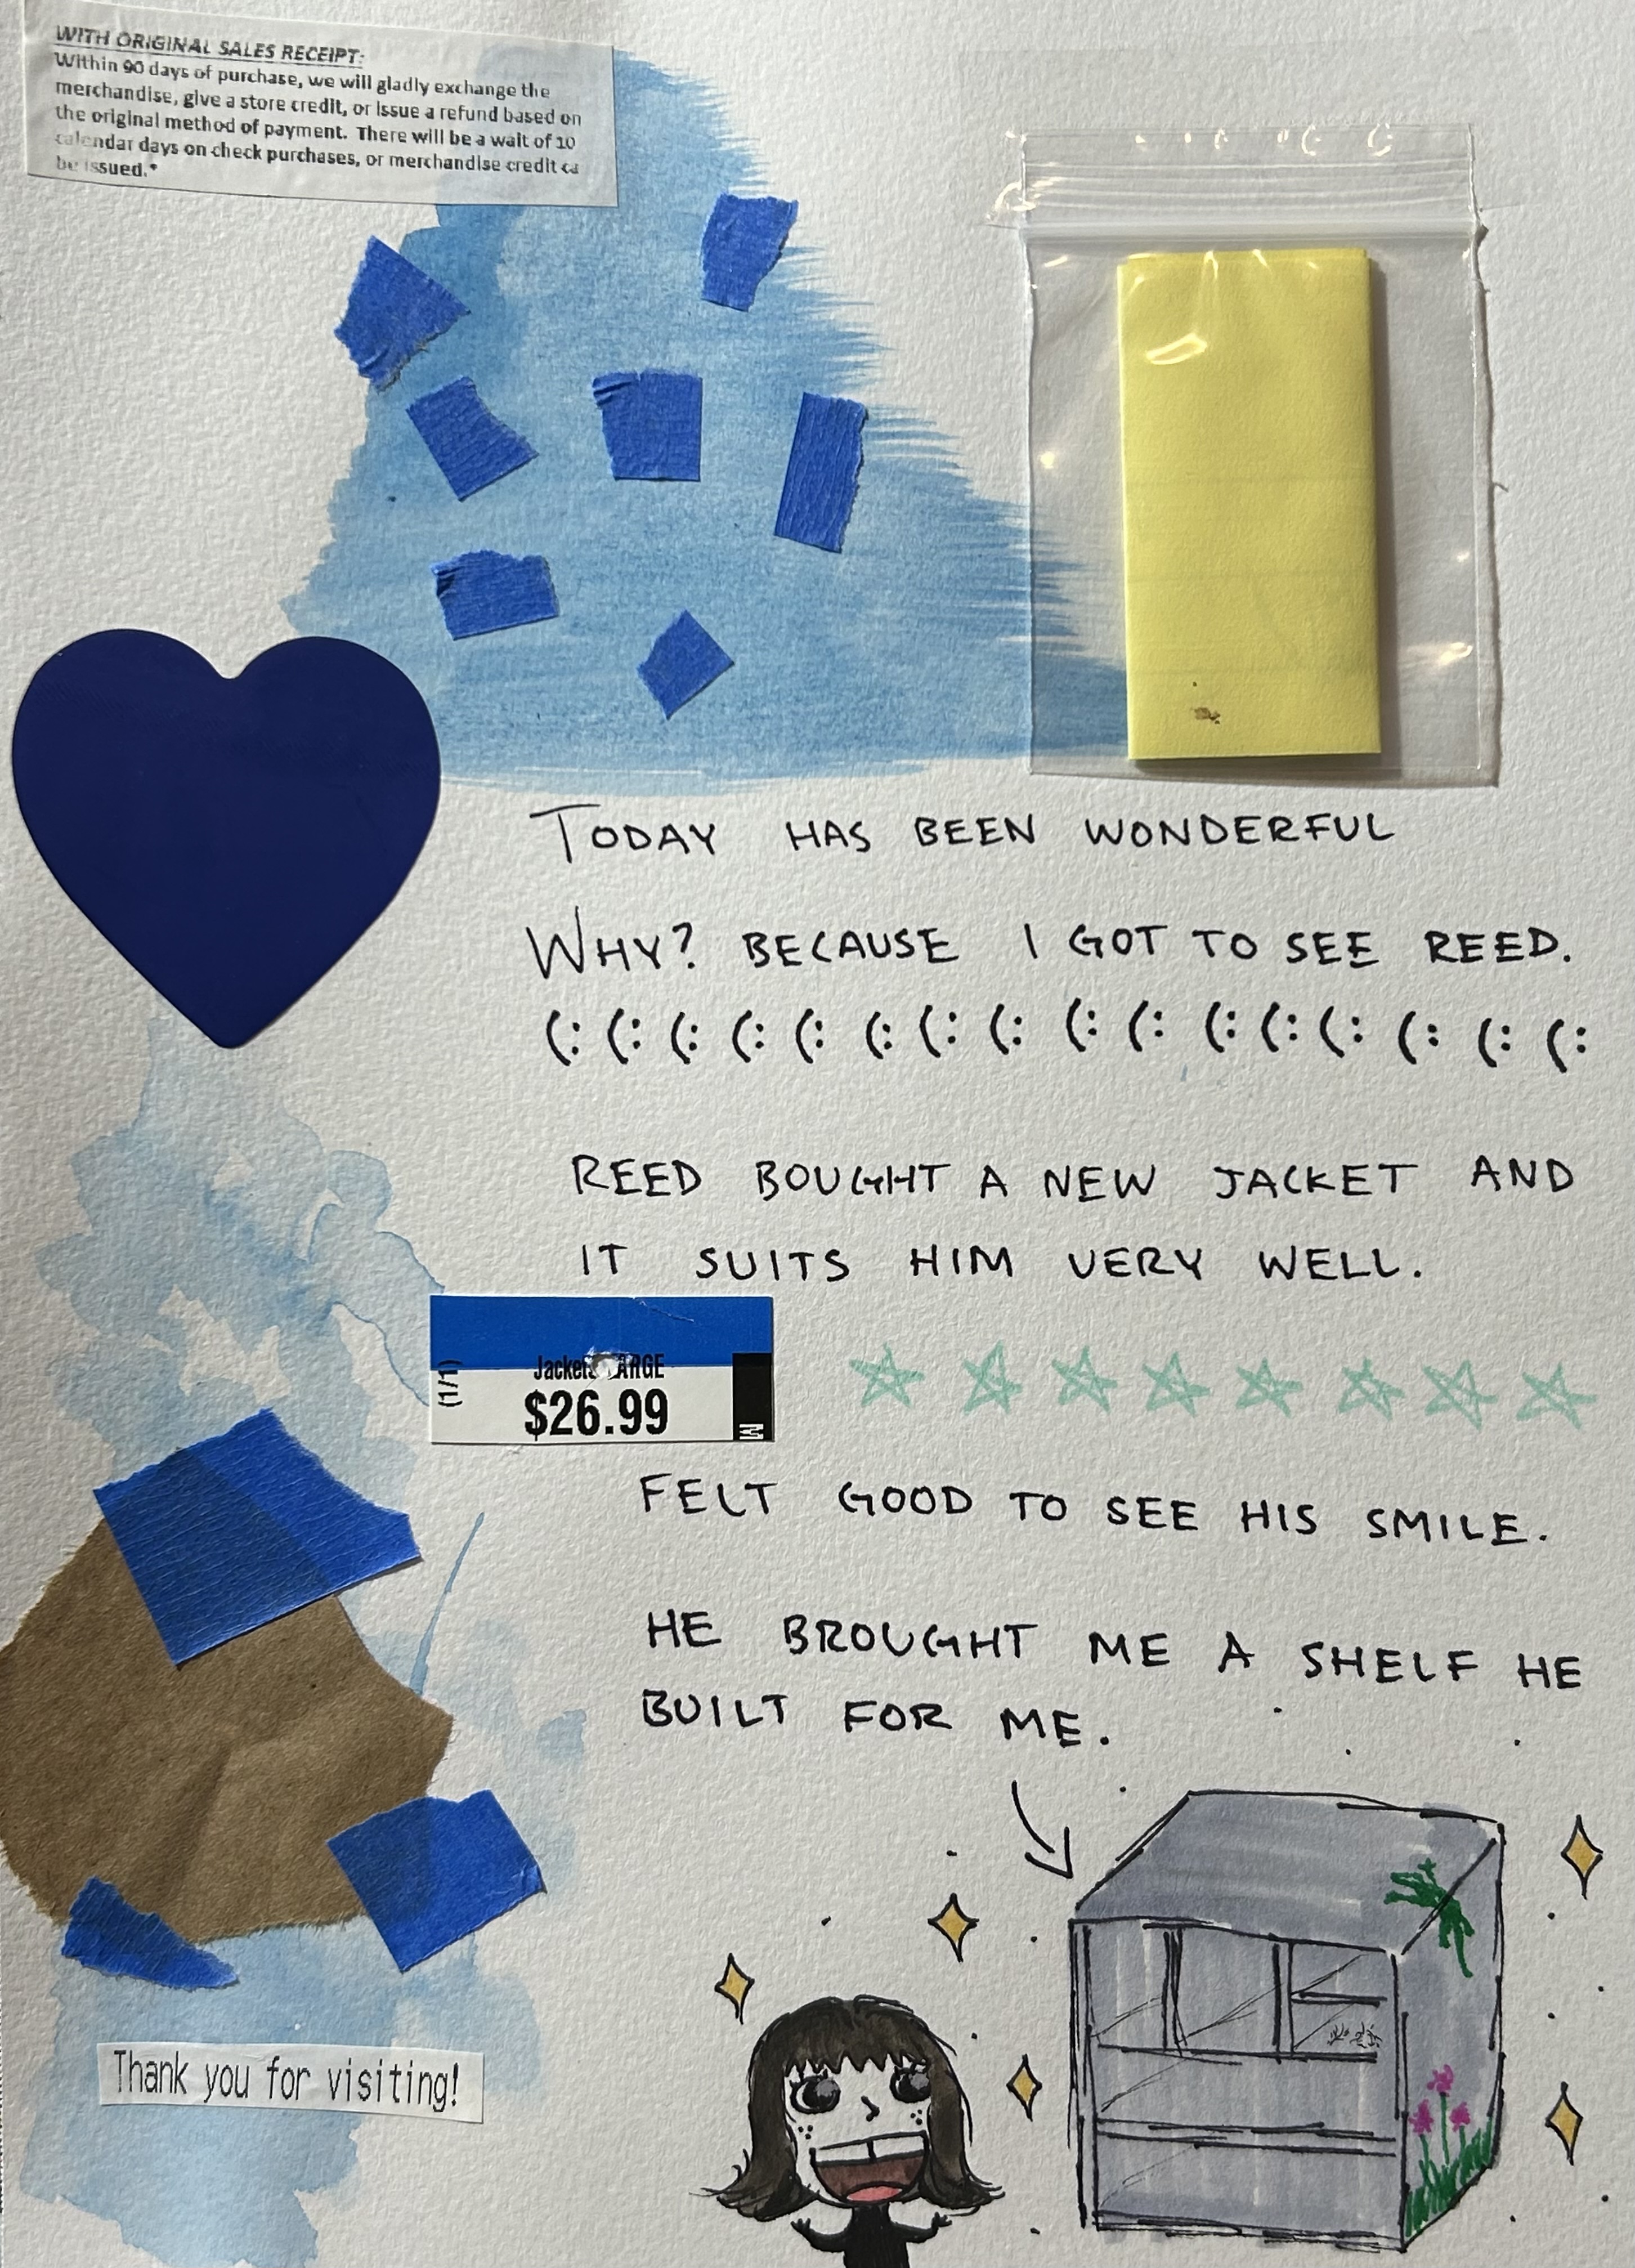 WITH ORIGINAL SALES RECEIPT:
Within 90 days of purchase, we will gladly exchange the
merchandise, give a store credit, or issue a refund based on
the original method of payment. There will be a wait of 10
calendar days on check purchases, or merchandise credit ca
be issued.*
TODAY HAS BEEN WONDERFUL
WHY? BECAUSE I GOT TO SEE REED.
(: (: (: (: (: (: (: (: (: (: (: (: (: (: (: (:
REED BOUGHT A NEW JACKET AND
IT SUITS HIM VERY WELL.
(1/1)
Jackets ARGE
$26.99
M
FELT GOOD TO SEE HIS SMILE.
HE BROUGHT ME A SHELF HE
BUILT FOR ME.
Thank you for visiting!